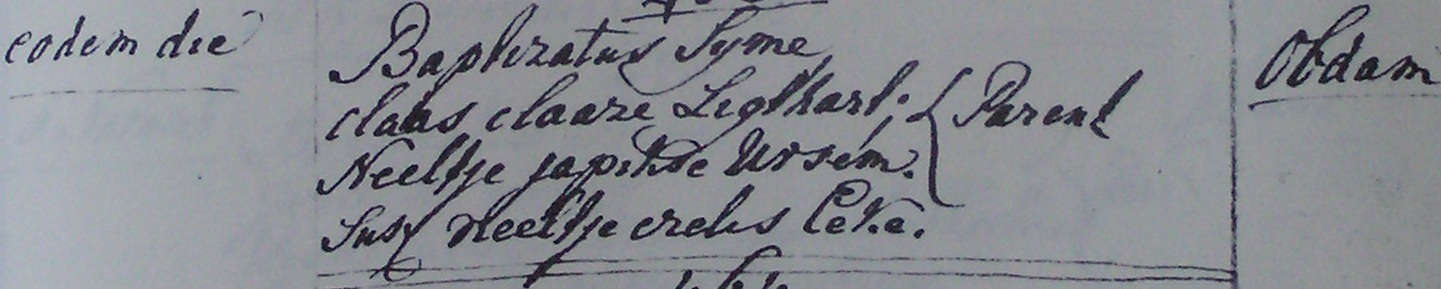 eodem die
Baptizatus Syme
claas claaze Ligthart; { Parent
Neeltje japikse Ursem.
Sus: Neeltje crelis
Obdam